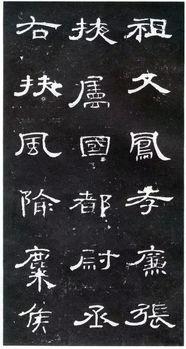 祖父鳳孝廉張
掖屬國都尉丞
右扶風隃麋侯